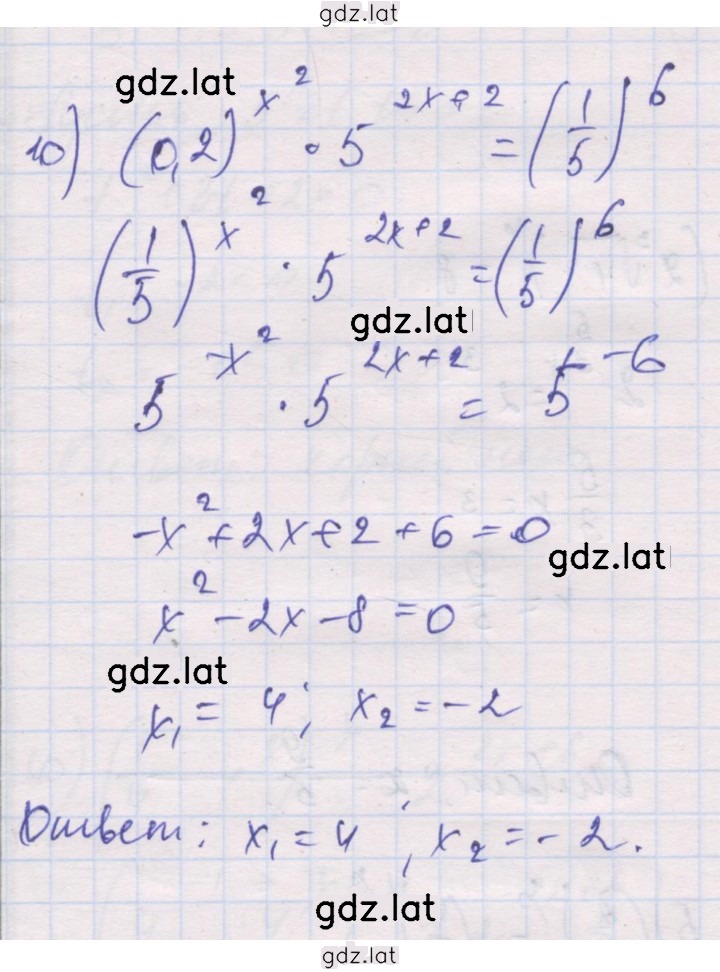 gdz.lat
gdz.lat
10) (0,2)^{x^2} · 5^{2x+2} = (1/5)^6
(1/5)^{x^2} · 5^{2x+2} = (1/5)^6
gdz.lat
5^{-x^2} · 5^{2x+2} = 5^{-6}
-x^2+2x+2+6=0
gdz.lat
x^2-2x-8=0
gdz.lat
x_1 = 4; x_2 = -2
Ответ: x_1 = 4; x_2 = -2.
gdz.lat
gdz.lat